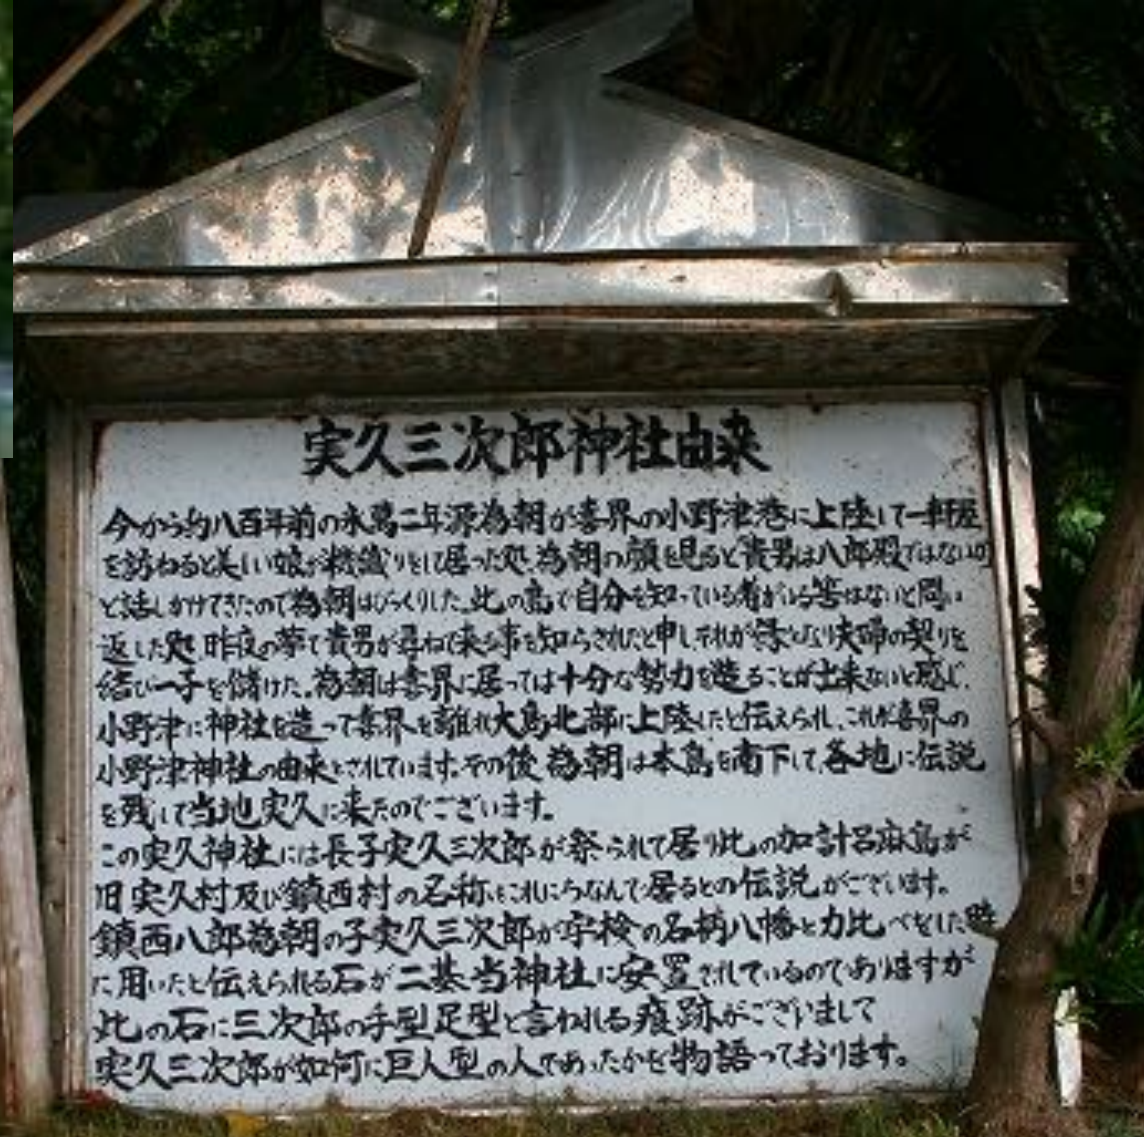 実久三次郎神社由来
今から約八百年前の永萬二年源為朝が喜界の小野津港に上陸して一軒屋
を訪ねると美しい娘が機織りをして居った処為朝の顔を見ると貴男は八郎殿ではないの
と話しかけてきたので為朝はびっくりした。此の島で自分を知っている者がいる筈はないと問い
返した処昨夜の夢で貴男が尋ねて来る事を知らされたと申しそれが縁となり夫婦の契りを
結び一子を儲けた。為朝は喜界に居っては十分な勢力を造ることが出来ないと感じ、
小野津に神社を造って喜界を離れ大島北部に上陸したと伝えられ、これが喜界の
小野津神社の由来とされています。その後為朝は本島を南下して、各地に伝説
を残して当地実久に来たのでございます。
この実久神社には長子実久三次郎が祭られて居り此の加計呂麻島が
旧実久村及び鎮西村の名称もこれにちなんで居るとの伝説がございます。
鎮西八郎為朝の子実久三次郎が宇検の名柄八幡と力比べをした時
に用いたと伝えられる石が二基当神社に安置されているのでありますが
此の石に三次郎の手型足型と言われる痕跡がございまして
実久三次郎が如何に巨人型の人であったかを物語っております。